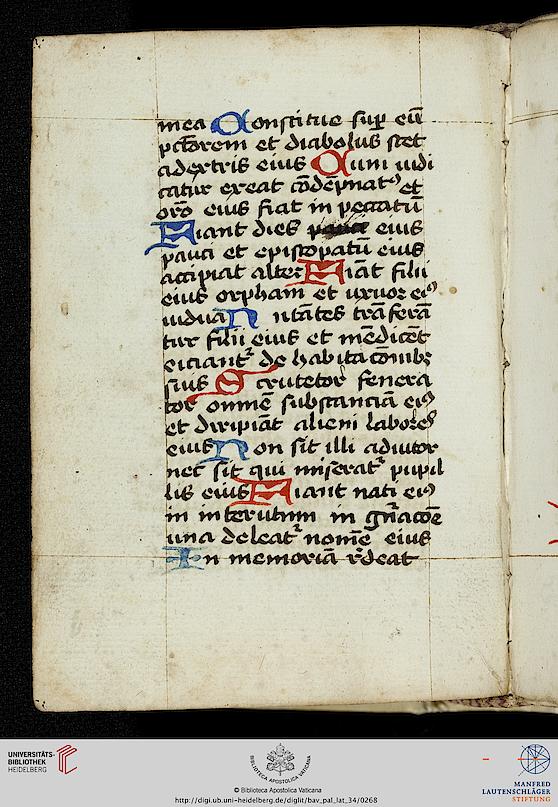 mea Constitue sup eū
pctōrem et diabolus stet
a dextris eius Cum iudi
catur exeat cōdēpnatꝰ et
orō eius fiat in peccatū
Fiant dies eius
pauci et epistopatū eius
accipiat alter Fiāt filii
eius orphani et uxor eiꝰ
uidua N utātes trāferā
tur filii eius et mēdicēt
eiciantᷣ de habitacōnibꝫ
suis S crutetor fenera
tor omnē substanciā eiꝰ
et diripiāt alieni laboreſ
eius N on sit illi adiutor
nec sit qui miseratᷣ pupil
lis eius Fiant nati eiꝰ
in interitum in gn̄acōe
una deleatᷣ nomē eius
In memoriā rͣdeat
UNIVERSITÄTS-
BIBLIOTHEK
HEIDELBERG
BIBLIOTHECA APOSTOLICA VATICANA
© Biblioteca Apostolica Vaticana
http://digi.ub.uni-heidelberg.de/diglit/bav_pal_lat_34/0268
MANFRED
LAUTENSCHLÄGER
STIFTUNG